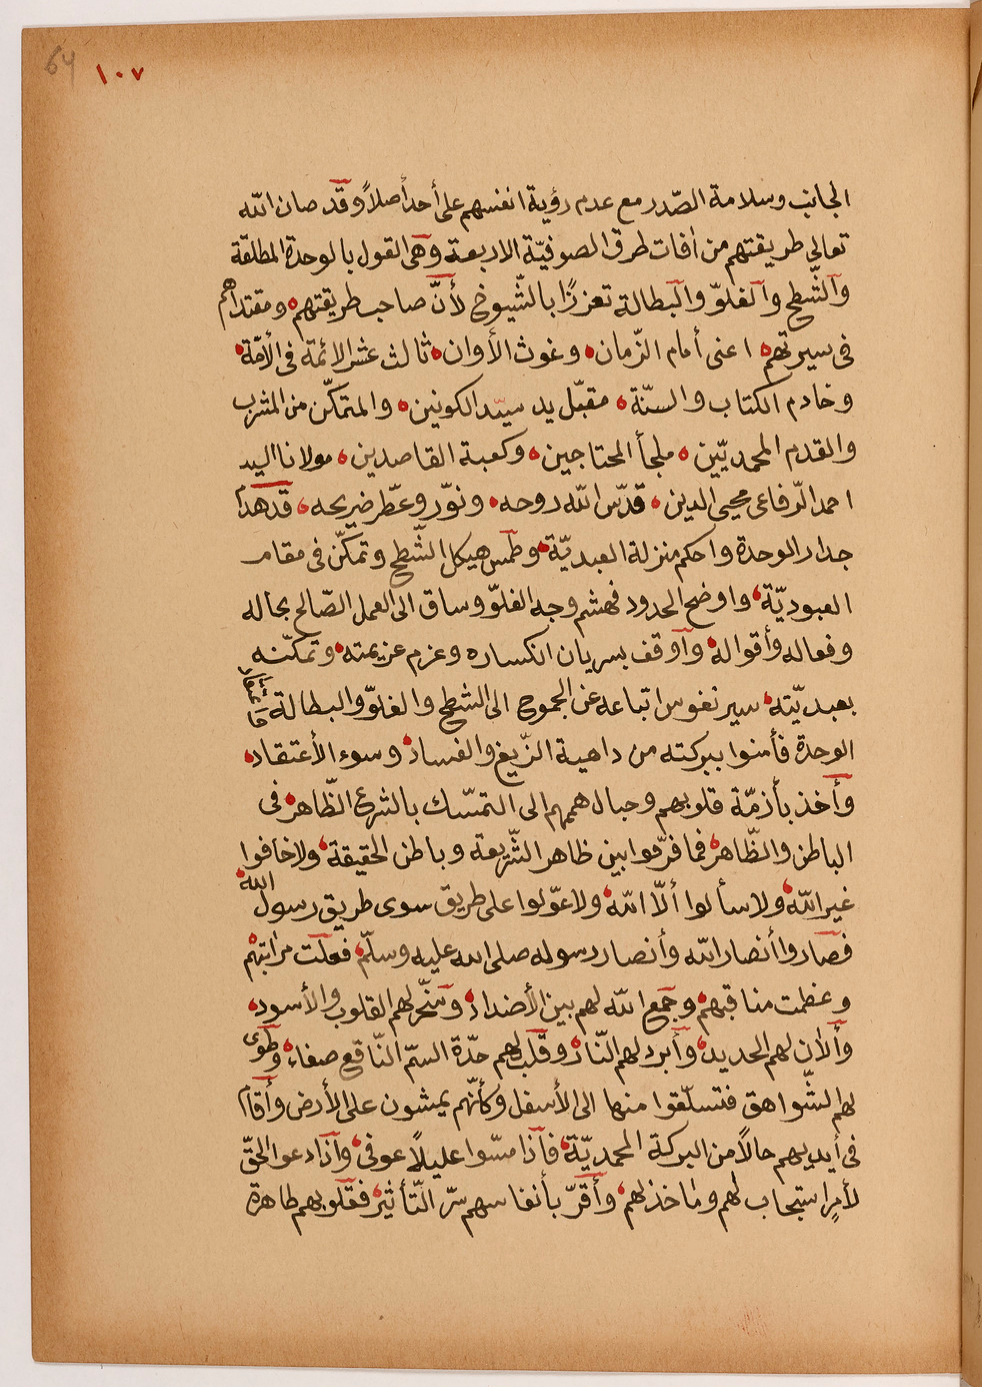 64 ١٠٧
الجانب وسلامة الصّدر مع عدم رؤية انفسهم على أحد أصلاً وقد صان الله
تعالى طريقتهم من اٰفات طرق الصوفيّة الاربعة وهى القول بالوحدة المطلقة
والشّطح والغلوّ والبطالة تعززًا بالشّيوخ لأنّ صاحب طريقتهم ومقتداهم
فى سيرتهم اعنى أمام الزّمان وغوث الأوان ثالث عشر الائمة فى الأمّة
وخادم الكتاب والسنّة مقبّل يد سيّد الكونين والمتمكّن من المشرب
والقدم المحمديّين ملجأ المحتاجين وكعبة القاصدين مولانا السيد
احمد الرّفاعى محيى الدين قدّس الله روحه ونوّر وعطّر ضريحه قد هدم
جدار الوحدة واحكم منزلة العبديّة وطمس هيكل الشّطح وتمكّن فى مقام
العبوديّة واوضح الحدود فهشم وجه الغلوّ وساق الى العمل الصّالح بحاله
وفعاله وأقواله وأوقف بسريان انكساره وعزم عزيمته وتمكّنه
بعبديّته سير نفوس اتباعه عن الجموح الى الشطح والغلوّ والبطالة
الوحدة فأمنوا ببركته من داهية الزّيغ والفساد وسوء الأعتقاد
وأخذ بأزمّة قلوبهم وحبال هممهم الى التمسّك بالشرع الظّاهر فى
الباطن والظّاهر فما فرّقوا بين ظاهر الشّريعة وباطن الحقيقة ولا خافوا
غير الله ولا سألوا ألّا الله ولا عوّلوا على طريق سوى طريق رسول الله
فصاروا أنصار الله وأنصار رسوله صلى الله عليه وسلّم فعلت مراتبهم
وعظمت مناقبهم وجمع الله لهم بين الأضداد وسخّر لهم القلوب والأسود
وألان لهم الحديد وأبرد لهم النّار وقلب لهم حدّة السمّ النّاقع صفاء وطوى
لهم الشّواهق فتسلّقوا منها الى الأسفل وكأنّهم يمشون على الأرض وأقام
فى أيديهم حالاً من البركة المحمديّة فأذا مسّوا عليلاً عوفى وأذا دعوا الحقّ
لأمرٍ استجاب لهم وما خذلهم وأقرّ بأنفاسهم سرّ التّأثير فقلوبهم طاهرة